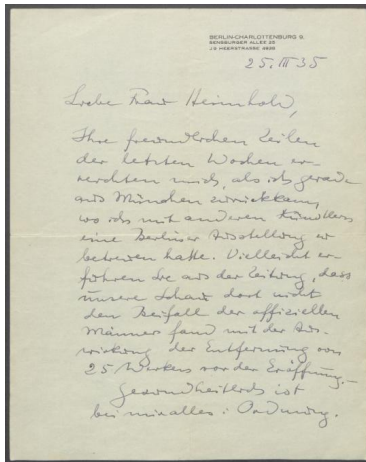 BERLIN-CHARLOTTENBURG 9.
SENSBURGER ALLEE 25
J9 HEERSTRASSE
25. III 35
Liebe Frau
Ihre freundlichen Zeilen
der letzten Wochen er-
reichten mich, als ich gerade
aus München zurückkam,
wo ich mit anderen Künstlern
eine Berliner Ausstellung zu
betreuen hatte. Vielleicht er-
fuhren Sie aus der Zeitung, dass
unsere Schau dort nicht
den Beifall der offiziellen
Männer fand mit der Aus-
wirkung der Entfernung von
25 Werken vor der Eröffnung.-
Gesundheitlich ist
bei mir alles i. Ordnung.